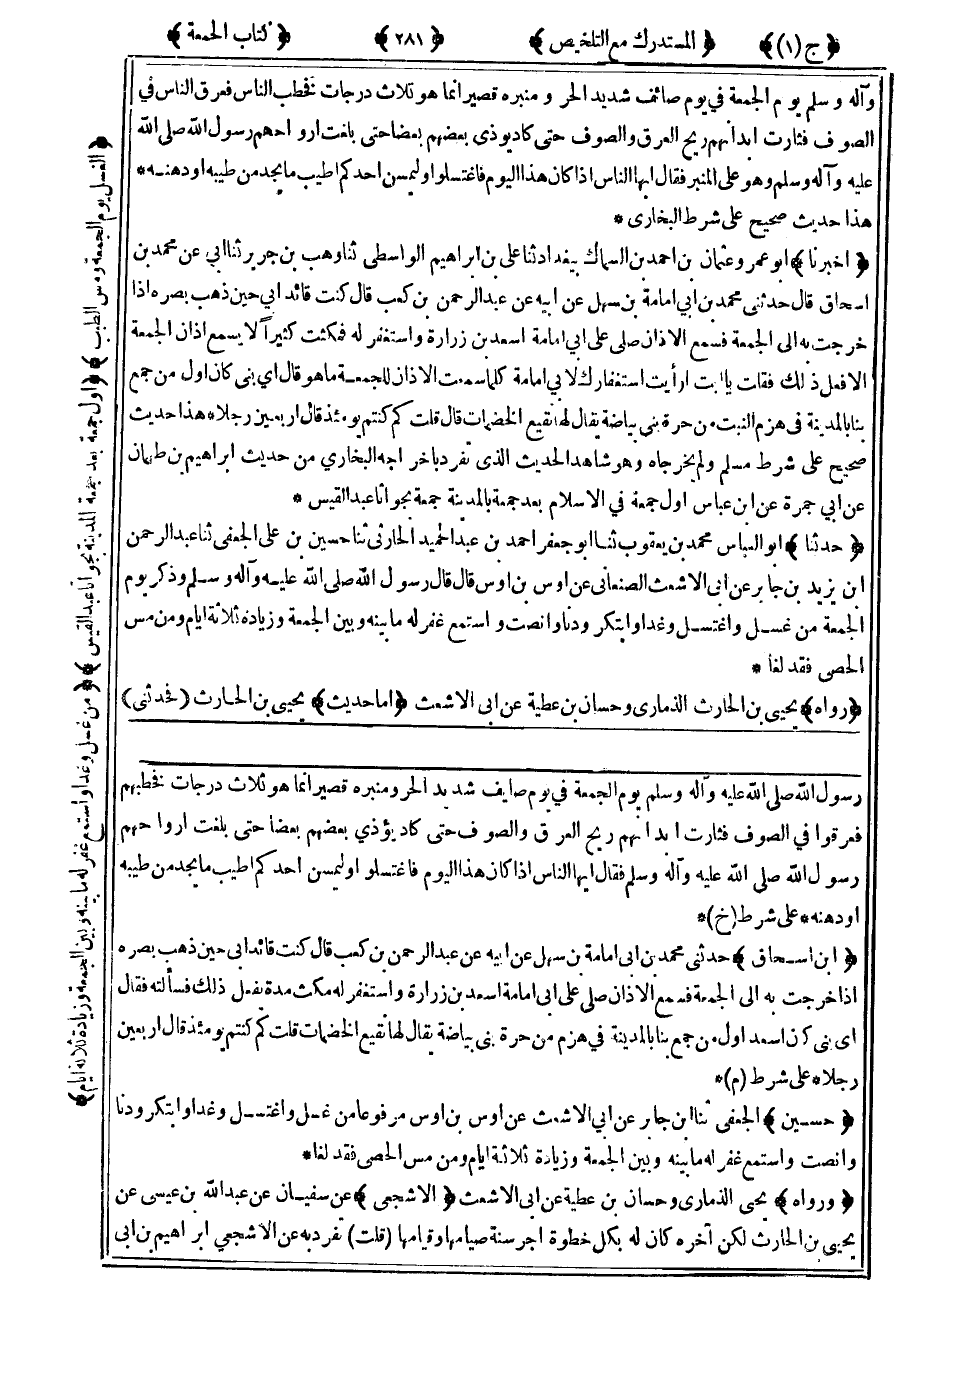 ﴿ ج (١) ﴾ ﴿ المستدرك مع التلخيص ﴾ ﴿ ٢٨١ ﴾ ﴿ كتاب الجمعة ﴾
وآله وسلم يوم الجمعة في يوم صائف شديد الحر ومنبره قصير انما هو ثلاث درجات فخطب الناس فعرق الناس في
الصوف فثارت ابدانهم ريح العرق والصوف حتى كاد يوذى بعضهم بعضا حتى بلغت ارواحهم رسول الله صلى الله
عليه وآله وسلم وهو على المنبر فقال ايها الناس اذا كان هذا اليوم فاغتسلوا وليمس احدكم اطيب ما يجد من طيبه او دهنه *
هذا حديث صحيح على شرط البخارى *
﴿ اخبرنا ﴾ ابو عمرو عثمان بن احمد بن السماك ببغداد ثنا على بن ابراهيم الواسطى ثنا وهب بن جرير ثنا ابي عن محمد بن
اسحاق قال حدثنى محمد بن ابي امامة بن سهل عن ابيه عن عبد الرحمن بن كعب قال كنت قائد ابي حين ذهب بصره اذا
خرجت به الى الجمعة فسمع الاذان صلى على ابي امامة اسعد بن زرارة واستغفر له فمكثت كثيراً لا يسمع اذان الجمعة
الا فعل ذلك فقلت يا ابت ارأيت استغفارك لابي امامة كلما سمعت الاذان للجمعة ما هو قال اي بنى كان اول من جمع
بنا بالمدينة فى هزم النبت من حرة بنى بياضة يقال لها نقيع الخضمات قال قلت كم كنتم يومئذ قال اربعين رجلا * هذا حديث
صحيح على شرط مسلم ولم يخرجاه وهو شاهد الحديث الذى تفرد باخراجه البخاري من حديث ابراهيم بن طهمان
عن ابي جمرة عن ابن عباس اول جمعة في الاسلام بعد جمعة بالمدينة جمعة بجواثا عبد القيس *
﴿ حدثنا ﴾ ابو العباس محمد بن يعقوب ثنا ابو جعفر احمد بن عبد الحميد الحارثى ثنا حسين بن على الجعفى ثنا عبد الرحمن
ابن يزيد بن جابر عن ابى الاشعث الصنعانى عن اوس بن اوس قال قال رسول الله صلى الله عليه وآله وسلم وذكر يوم
الجمعة من غسل واغتسل وغدا وابتكر ودنا وانصت واستمع غفر له ما بينه وبين الجمعة وزيادة ثلاثة ايام ومن مس
الحصى فقد لغا *
﴿ رواه ﴾ يحيى بن الحارث الذمارى وحسان بن عطية عن ابى الاشعث ﴿ اما حديث ﴾ يحيى بن الحارث (فحدثنى)
رسول الله صلى الله عليه وآله وسلم يوم الجمعة في يوم صايف شديد الحر ومنبره قصير انما هو ثلاث درجات فخطبهم
فعرقوا في الصوف فثارت ابدانهم ريح العرق والصوف حتى كاد يؤذي بعضهم بعضا حتى بلغت ارواحهم
رسول الله صلى الله عليه وآله وسلم فقال ايها الناس اذا كان هذا اليوم فاغتسلوا وليمس احدكم اطيب ما يجد من طيبه
او دهنه * على شرط (خ) *
﴿ ابن اسحاق ﴾ حدثنى محمد بن ابى امامة بن سهل عن ابيه عن عبد الرحمن بن كعب قال كنت قائد ابى حين ذهب بصره
اذا خرجت به الى الجمعة فسمع الاذان صلى على ابى امامة اسعد بن زرارة واستغفر له مكث مدة يفعل ذلك فسألته فقال
اى بنى كان اسعد اول من جمع بنا بالمدينة في هزم من حرة بنى بياضة يقال لها نقيع الخضمات قلت كم كنتم يومئذ قال اربعين
رجلا * على شرط (م) *
﴿ حسين ﴾ الجعفى ثنا ابن جابر عن ابي الاشعث عن اوس بن اوس مرفوعا من غسل واغتسل وغدا وابتكر ودنا
وانصت واستمع غفر له ما بينه وبين الجمعة وزيادة ثلاثة ايام ومن مس الحصى فقد لغا *
﴿ ورواه ﴾ يحيى الذمارى وحسان بن عطية عن ابى الاشعث ﴿ الاشجعى ﴾ عن سفيان عن عبد الله بن عيسى عن
يحيى بن الحارث لكن آخره كان له بكل خطوة اجر سنة صيامها وقيامها (قلت) تفرد به عن الاشجعي ابراهيم بن ابى
﴿ الغسل يوم الجمعة ومس الطيب ﴾ ﴿ اول جمعة بعد جمعة المدينة بجواثا عبد القيس ﴾ ﴿ من غسل وغدا واستمع غفر له ما بينه وبين الجمعة وزيادة ثلاثة ايام ﴾